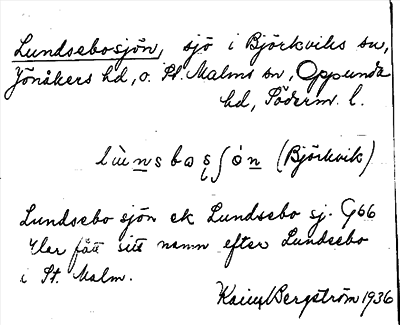 Lundsebosjön, sjö i Björkviks sn,
Jönåkers hd, o. St. Malms sn, Oppunda
hd, Söderm. l.
lùnsbosʃón (Björkvik)
Lundsebo sjön ek Lundsebo sj. G66
Har fått sitt namn efter Lundsebo
i St. Malm.
Bergström 1936